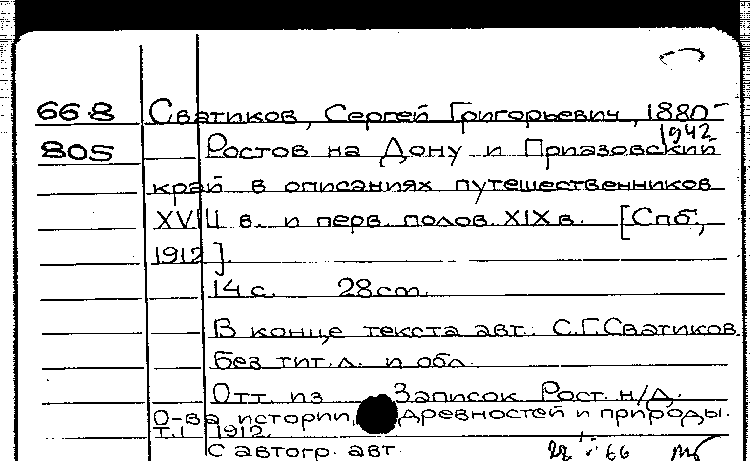 668 Сватиков, Сергей Григорьевич, 1880-
1942
805 Ростов на Дону и Приазовский
край в описаниях путешественников
XVIII в. и перв. полов. XIX в. [Спб.,
1912].
14 с. 28 cm.
В конце текста авт.: С.Г.Сватиков.
Без тит.л. и обл.
Отт. из Записок Рост. н/Д.
О-ва истории, древностей и природы.
Т.I 1912.
С автогр. авт.